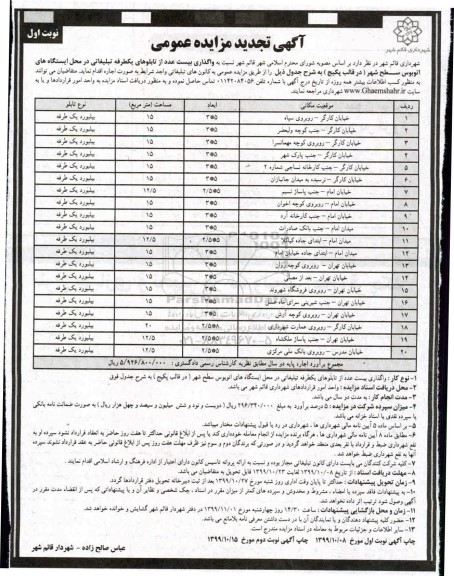 نوبت اول
شهرداری قائم شهر
آگهی تجدید مزایده عمومی
شهرداری قائم شهر در نظر دارد بر اساس مصوبه شورای محترم اسلامی شهر قائم شهر نسبت به واگذاری بیست عدد از تابلوهای یکطرفه تبلیغاتی در محل ایستگاه های
اتوبوس سطح شهر ( در قالب پکیج ) به شرح جدول ذیل را از طریق مزایده عمومی به کانون های تبلیغاتی واجد شرایط به صورت اجاره اقدام نماید. متقاضیان می توانند
سایت www.Ghaemshahr.ir شهرداری مراجعه نمایند.
ردیف موقعیت مکانی ابعاد مساحت (متر مربع) نوع تابلو
۱ خیابان کارگر – روبروی سپاه ۳*۵ ۱۵ بیلبورد یک طرفه
۲ خیابان کارگر – جنب کوچه ولیعصر ۳*۵ ۱۵ بیلبورد یک طرفه
۳ خیابان کارگر – روبروی کوچه مهمانسرا ۳*۵ ۱۵ بیلبورد یک طرفه
۴ خیابان کارگر – جنب پارک شهر ۳*۵ ۱۵ بیلبورد یک طرفه
۵ خیابان کارگر – جنب کارخانه نساجی شماره ۲ ۳*۵ ۱۵ بیلبورد یک طرفه
۶ خیابان کارگر – نرسیده به میدان جانبازان ۳*۵ ۱۵ بیلبورد یک طرفه
۷ خیابان امام – جنب پاساژ نسیم ۲/۵*۵ ۱۲/۵ بیلبورد یک طرفه
۸ خیابان امام – روبروی کوچه اخوان ۳*۵ ۱۵ بیلبورد یک طرفه
۹ خیابان امام – جنب کارخانه آرد ۳*۵ ۱۵ بیلبورد یک طرفه
۱۰ میدان امام – جنب بانک صادرات ۳*۵ ۱۵ بیلبورد یک طرفه
۱۱ میدان امام – ابتدای جاده کیاکلا ۲/۵*۵ ۱۲/۵ بیلبورد یک طرفه
۱۲ میدان امام – ابتدای جاده خیابان امام ۳*۵ ۱۵ بیلبورد یک طرفه
۱۳ خیابان تهران – روبروی کوچه ۳*۵ ۱۵ بیلبورد یک طرفه
۱۴ خیابان تهران – بعد از مصلی ۳*۵ ۱۵ بیلبورد یک طرفه
۱۵ خیابان تهران – روبروی فروشگاه شهروند ۳*۵ ۱۵ بیلبورد یک طرفه
۱۶ خیابان تهران – جنب شیرینی سرای ماه عسل ۳*۵ ۱۵ بیلبورد یک طرفه
۱۷ خیابان تهران – روبروی کوچه آرش ۳*۵ ۱۵ بیلبورد یک طرفه
۱۸ خیابان کارگر – روبروی عمارت شهرداری ۲/۵*۸ ۲۰ بیلبورد یک طرفه
۱۹ خیابان تهران – جنب پاساژ ملکشاه ۲/۵*۵ ۱۲/۵ بیلبورد یک طرفه
۲۰ خیابان مدرس – روبروی بانک ملی مرکزی ۲/۵*۵ ۱۲/۵ بیلبورد یک طرفه
مجموع برآورد اجاره پایه دو سال مطابق نظریه کارشناس رسمی دادگستری : ۵/۹۲۶/۸۰۰/۰۰۰ ریال
۱- نوع کار : واگذاری بیست عدد از تابلوهای یکطرفه تبلیغاتی در محل ایستگاه های اتوبوس سطح شهر ( در قالب پکیج ) به شرح جدول فوق
۲- محل دریافت اسناد مزایده : واحد امور قراردادهای شهرداری قائم شهر می باشد.
۳- مدت انجام کار : به مدت دو سال می باشد.
۴- میزان سپرده شرکت در مزایده : ۵ درصد برآورد به مبلغ ۲۹۶/۳۴۰/۰۰۰ ریال (دویست و نود و شش میلیون و سیصد و چهل هزار ریال) به صورت ضمانت نامه بانکی
یا سپرده نقدی یا اسناد خزانه می باشد.
۵- بر اساس ماده ۵ آیین نامه مالی شهرداری ها ، شهرداری در رد یا قبول پیشنهادات مختار میباشد.
۷- کلیه شرکت کنندگان می بایست دارای کانون تبلیغاتی مجاز بوده و نسبت به ارائه پروانه تاسیس کانون دارای اعتبار از اداره فرهنگ و ارشاد اسلامی اقدام نمایند.
۸- مهلت دریافت اسناد : از تاریخ ۱۳۹۹/۱۰/۰۸ لغایت ۱۳۹۹/۱۰/۲۳ قابل تحویل به متقاضیان می باشد.
۹- زمان تحویل پیشنهادات : حداکثر تا پایان وقت اداری روز شنبه مورخ ۱۳۹۹/۱۰/۲۷ بعد از ثبت دبیرخانه تحویل دفتر قراردادها گردد.
۱۱- زمان و محل بازگشایی پیشنهادات : ساعت ۱۴/۳۰ روز چهارشنبه مورخ ۱۳۹۹/۱۱/۰۱ در دفتر شهردار قائم شهر گشایش و خوانده خواهد شد.
۱۲- حضور کلیه پیشنهاد دهندگان و یا نمایندگان آن با در دست داشتن معرفی نامه بلامانع می باشد.
۱۳- سایر اطلاعات و جزئیات مربوط به معامله در اسناد مزایده مندرج است.
چاپ آگهی نوبت اول مورخ ۱۳۹۹/۱۰/۰۸ چاپ آگهی نوبت دوم مورخ ۱۳۹۹/۱۰/۱۵
عباس صالح زاده - شهردار قائم شهر